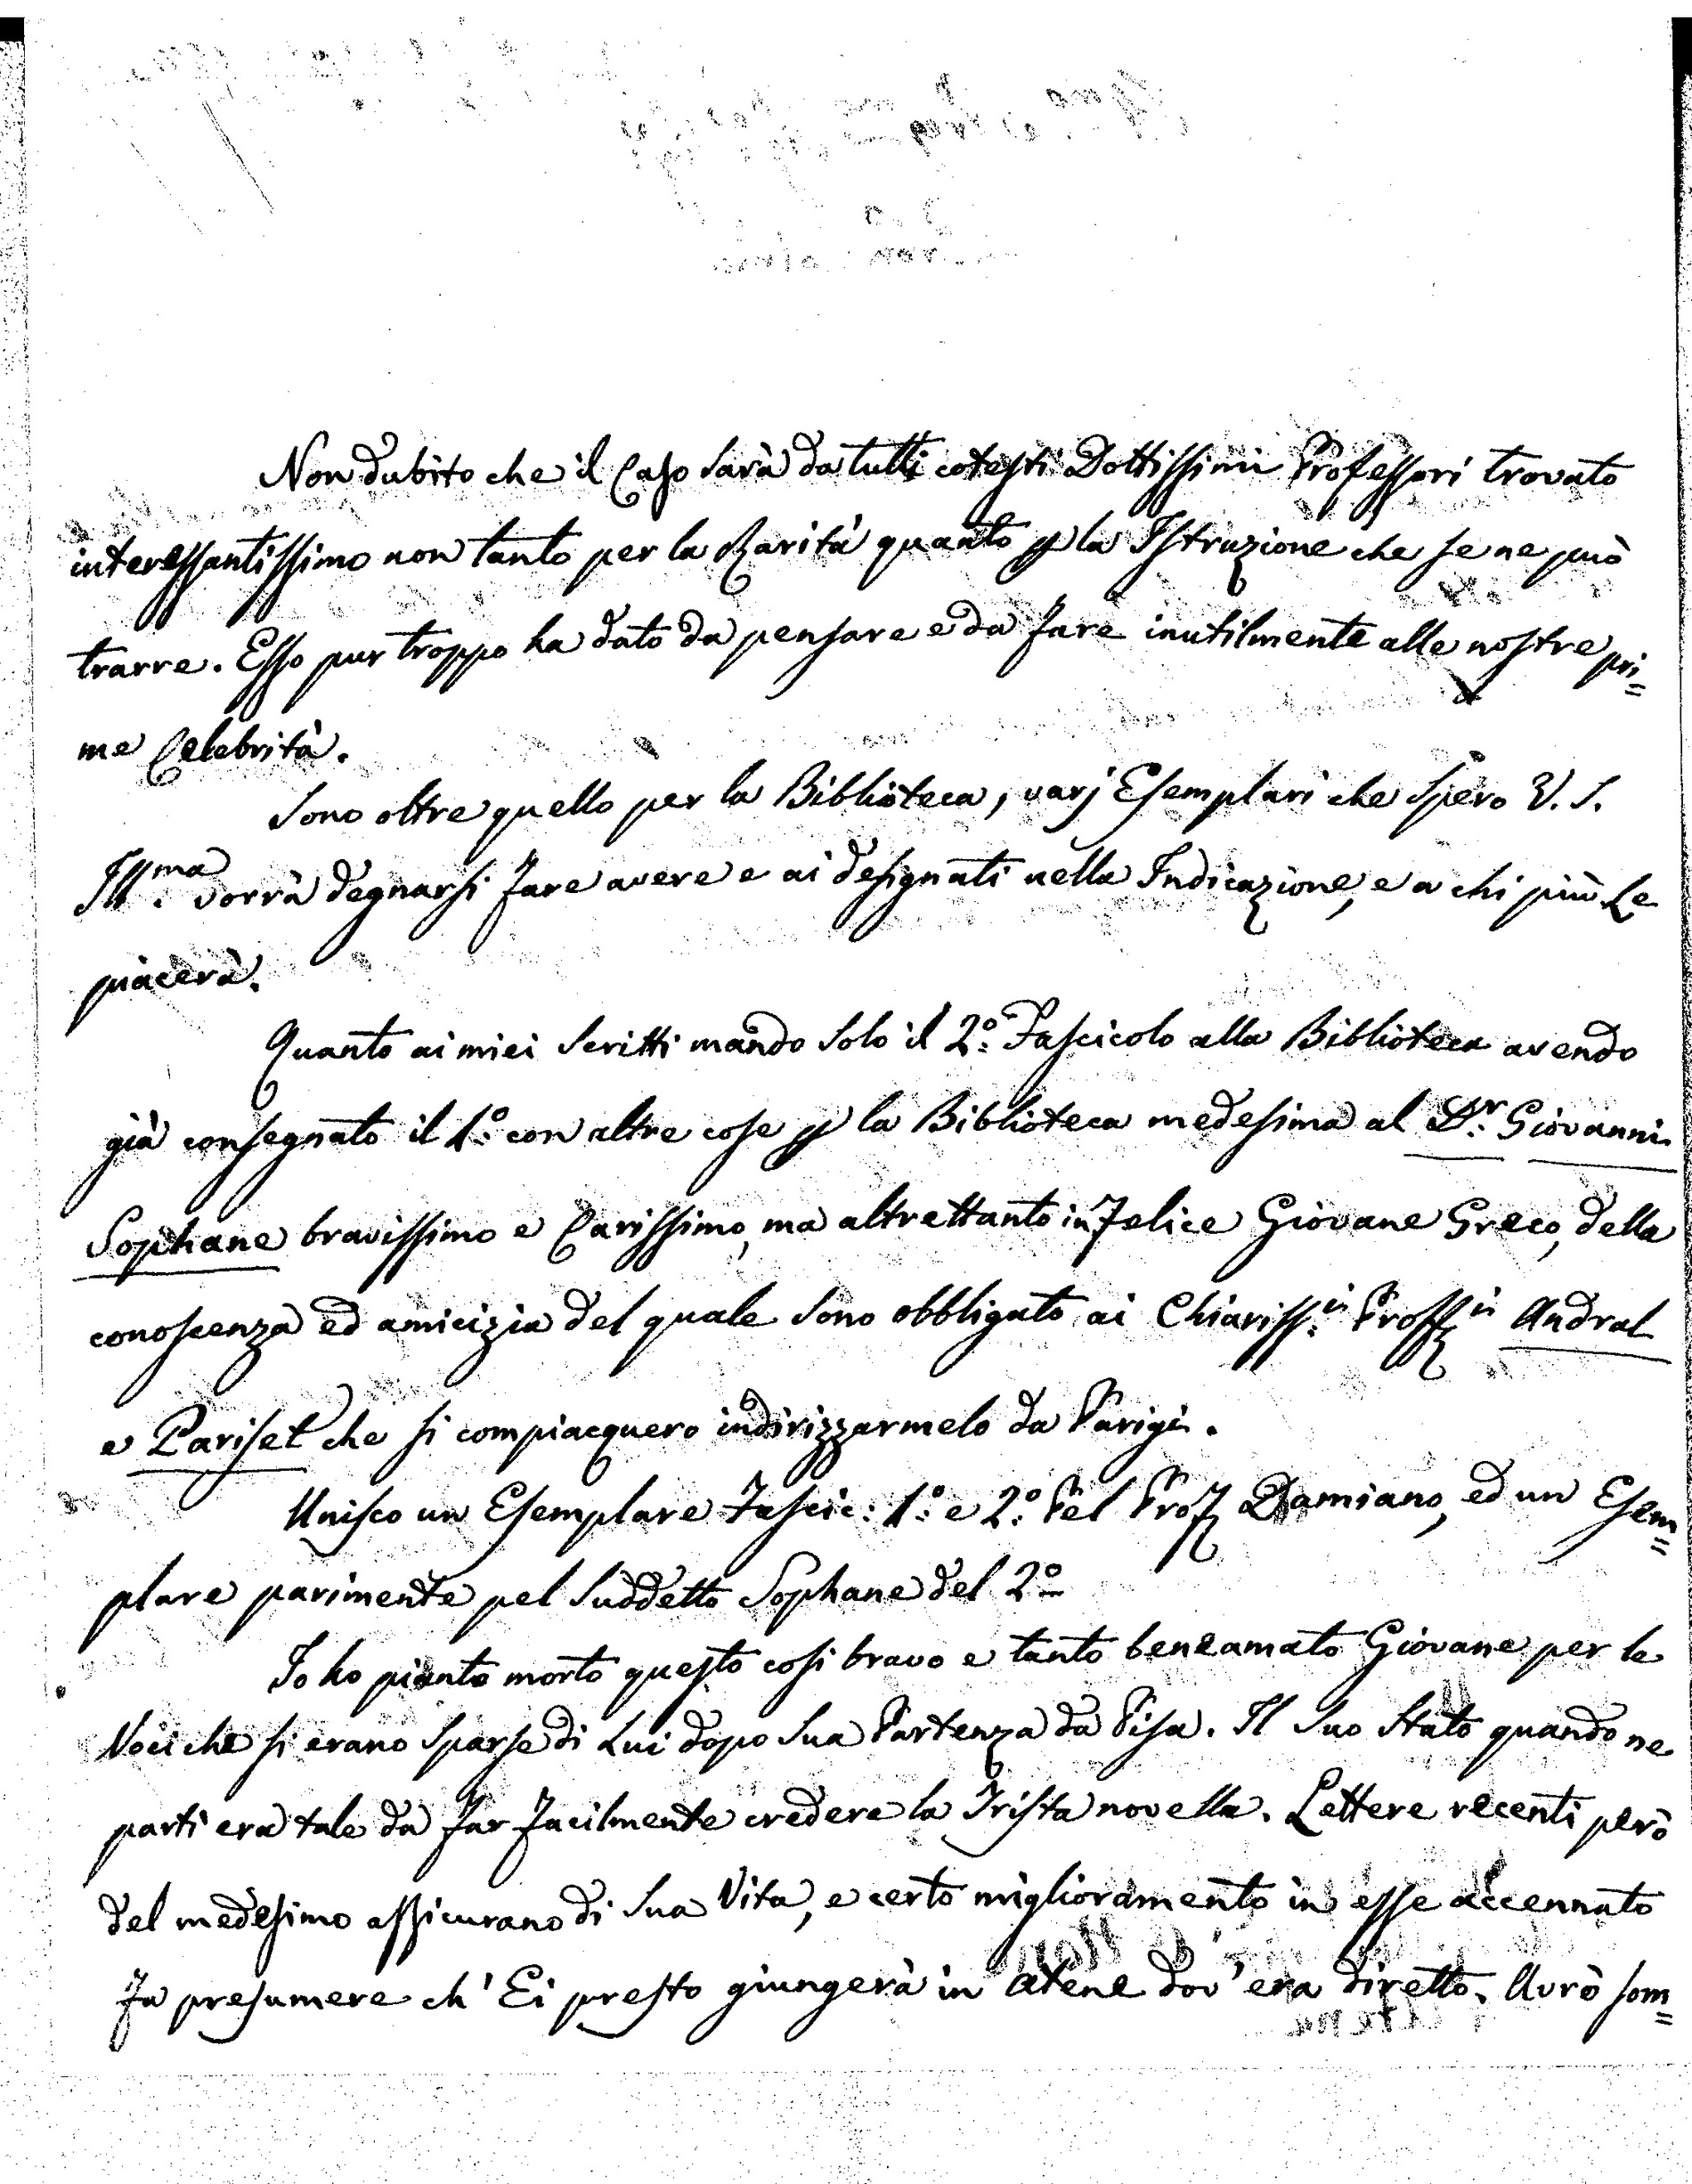 Non dubito che il Caso sarà da tutti cotesti Dottissimi Professori trovato
interessantissimo non tanto per la Rarità quanto p la Istruzione che se ne può
trarre. Esso pur troppo ha dato da pensare e da fare inutilmente alle nostre pri=
me Celebrità.
Sono oltre quello per la Biblioteca, varj Esemplari che spero V. S.
Illma. vorrà degnarsi fare avere e ai designati nella Indicazione, e a chi più Le
piacerà.
Quanto ai miei scritti mando solo il 2.o Fascicolo alla Biblioteca avendo
già consegnato il 1.o con altre cose p la Biblioteca medesima al Dr. Giovanni
Sophane bravissimo e Carissimo, ma altrettanto infelice Giovane Greco, della
conoscenza ed amicizia del quale sono obbligato ai Chiariss.i Proff.i Andral
e Pariset che si compiacquero indirizzarmelo da Parigi.
Unisco un Esemplare Fascic: 1.o e 2.o Pel Prof Damiano, ed un Esem=
plare parimente pel suddetto Sophane del 2o
Io ho pianto morto questo così bravo e tanto beneamato Giovane per le
Voci che si erano sparse di Lui dopo sua Partenza da Pisa. Il suo Stato quando ne
partì era tale da far facilmente credere la Trista novella. Lettere recenti però
del medesimo assicurano di sua Vita, e certo miglioramento in esse accennato
fa presumere ch' Ei presto giungerà in Atene dov' era diretto. Avrò som=